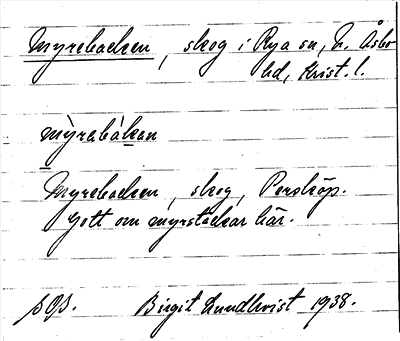 Myrebacken, skog i Rya sn, N. Åsbo
hd, Krist. l.
mỳrabàkan
Myrebacken, skog, Perstorp.
Gott om myrstackar här.
Birgit Lundkvist 1938.